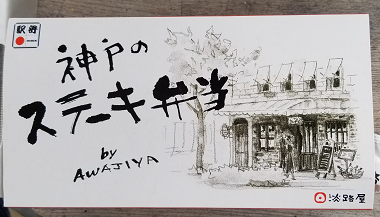 駅弁
神戸の
ステーキ弁当
by
AWAJIYA
淡路屋